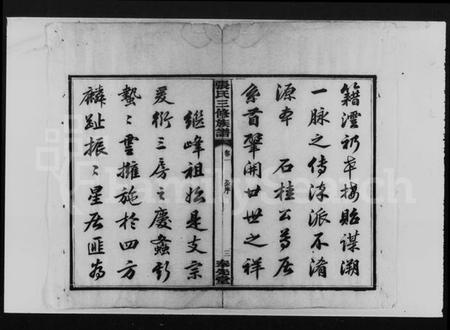 籍澧初卒按貽謀溯
一脉之傳洙派不淆
源本 石桂公苐居
系首肇開廿世之祥
張氏三修族譜 卷一 三 奉先堂
繼峰祖始是支宗
爰衍三房之慶螽斯
蟄蟄雲擁施於四方
麟趾振振星居匪